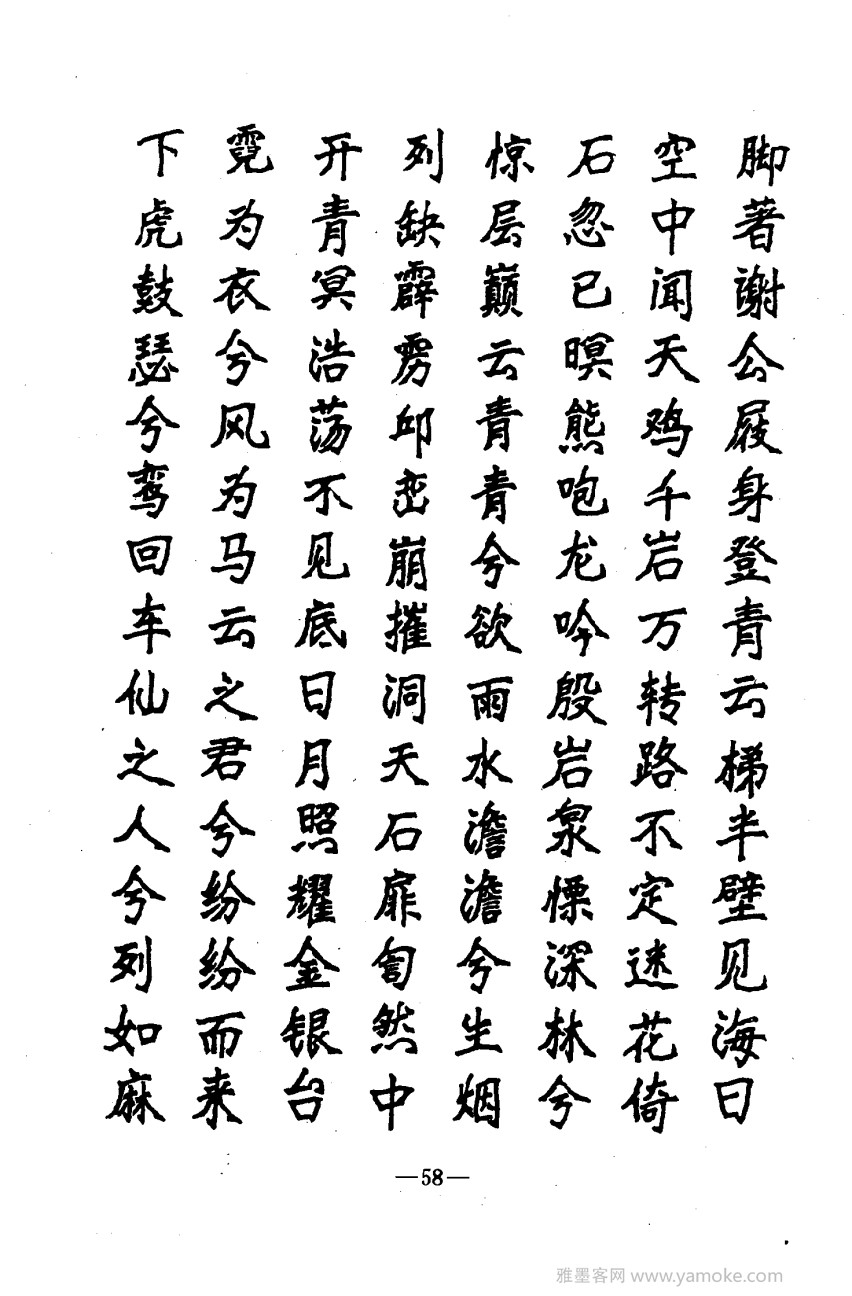 脚著谢公屐身登青云梯半壁见海日
空中闻天鸡千岩万转路不定迷花倚
石忽已暝熊咆龙吟殷岩泉慄深林兮
惊层巅云青青兮欲雨水澹澹兮生烟
列缺霹雳邱峦崩摧洞天石扉訇然中
开青冥浩荡不见底日月照耀金银台
霓为衣兮风为马云之君兮纷纷而来
下虎鼓瑟兮鸾回车仙之人兮列如麻
—58—
雅墨客网 www.yamoke.com